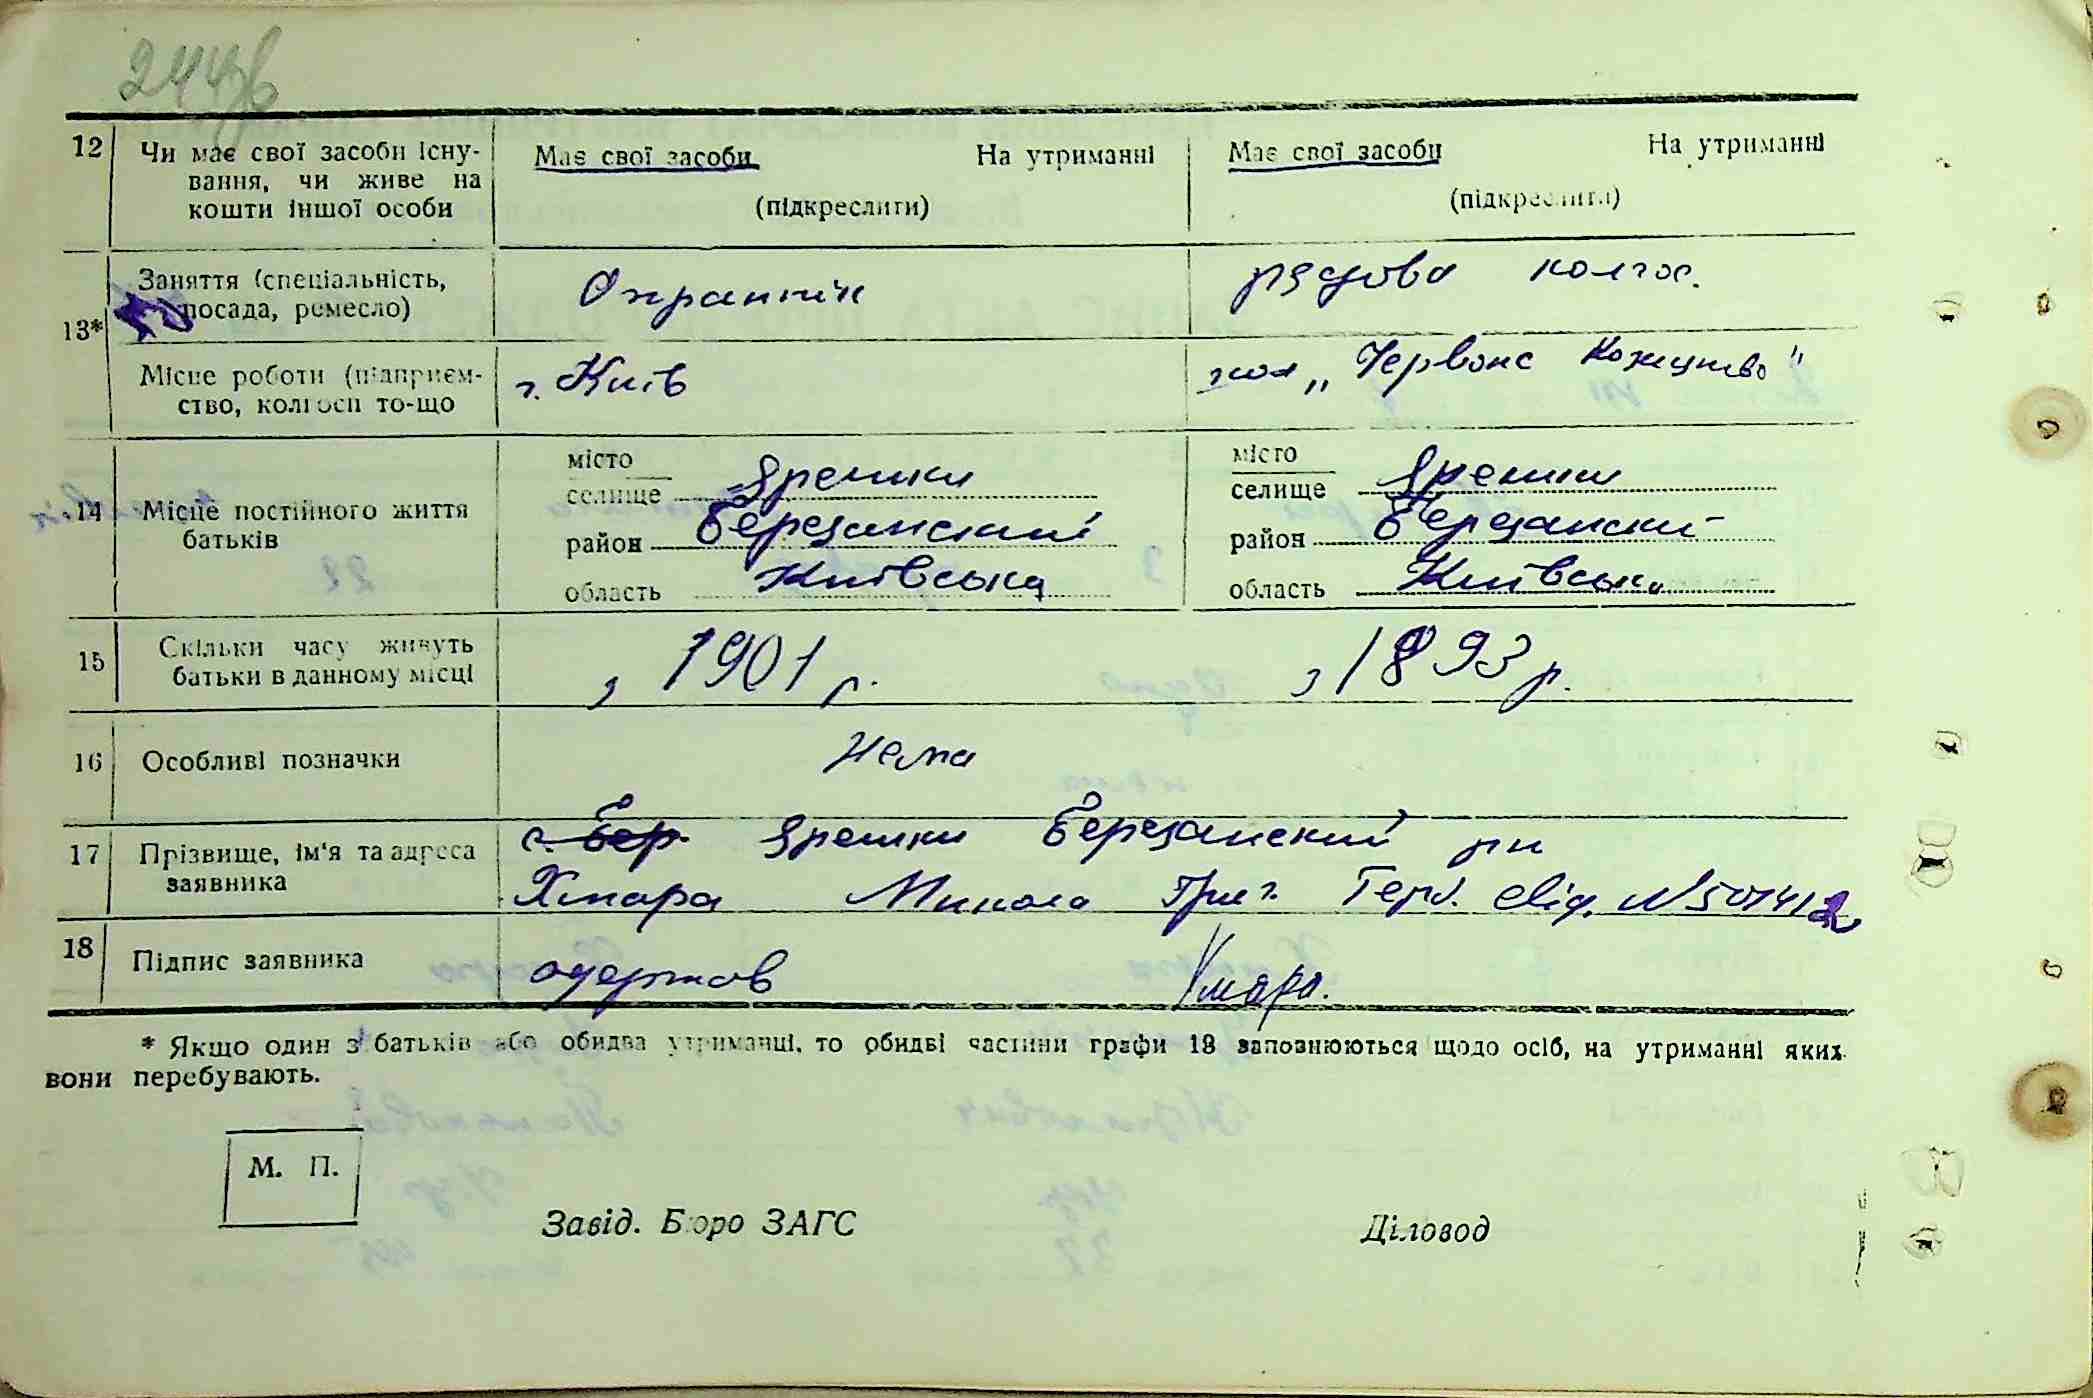 244зв
12 Чи має свої засоби існування, чи живе на кошти іншої особи Має свої засоби На утриманні (підкреслити) Має свої засоби На утриманні (підкреслити)
13* Заняття (спеціальність, посада, ремесло) Охраннік рядова колгос.
Місце роботи (підприємство, колгосп то-що г. Київ кол „Червоне
14 Місце постійного життя батьків
місто селище Ярешки місто селище Ярешки
район Березанский район Березанский
область Київська область Київська
15 Скільки часу живуть батьки в данному місці з 1901 р. з 1893 р.
16 Особливі позначки Нема
17 Прізвище, ім'я та адреса заявника с. Бер. Ярешки Березанский рн
Хмара Микола Григ. Герб. свід. №
18 Підпис заявника одержав Хмара.
* Якщо один з батьків або обидва утриманці, то обидві частини графи 13 заповнюються щодо осіб, на утриманні яких
вони перебувають.
М. П.
Завід. Бюро ЗАГС Діловод